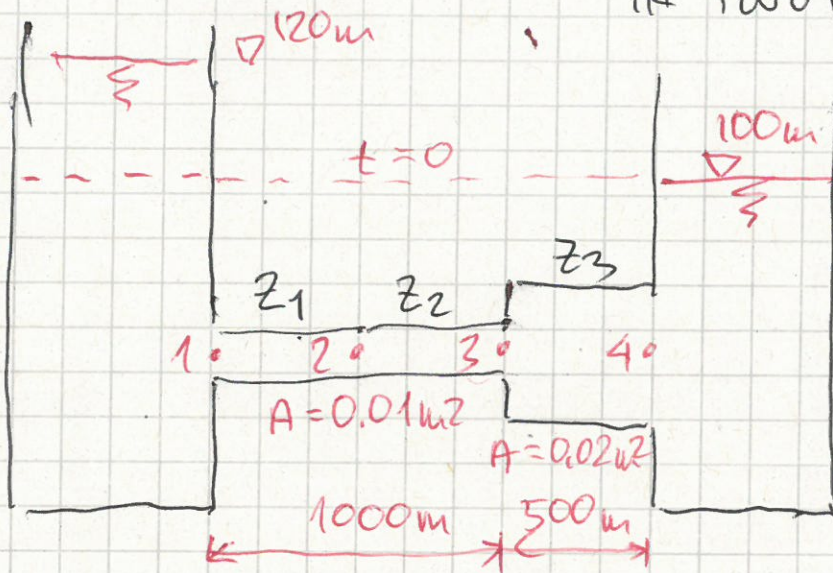 120m
100m
t = 0
Z1 Z2 Z3
1 2 3 4
A = 0.01m2
A = 0.02m2
1000m 500m